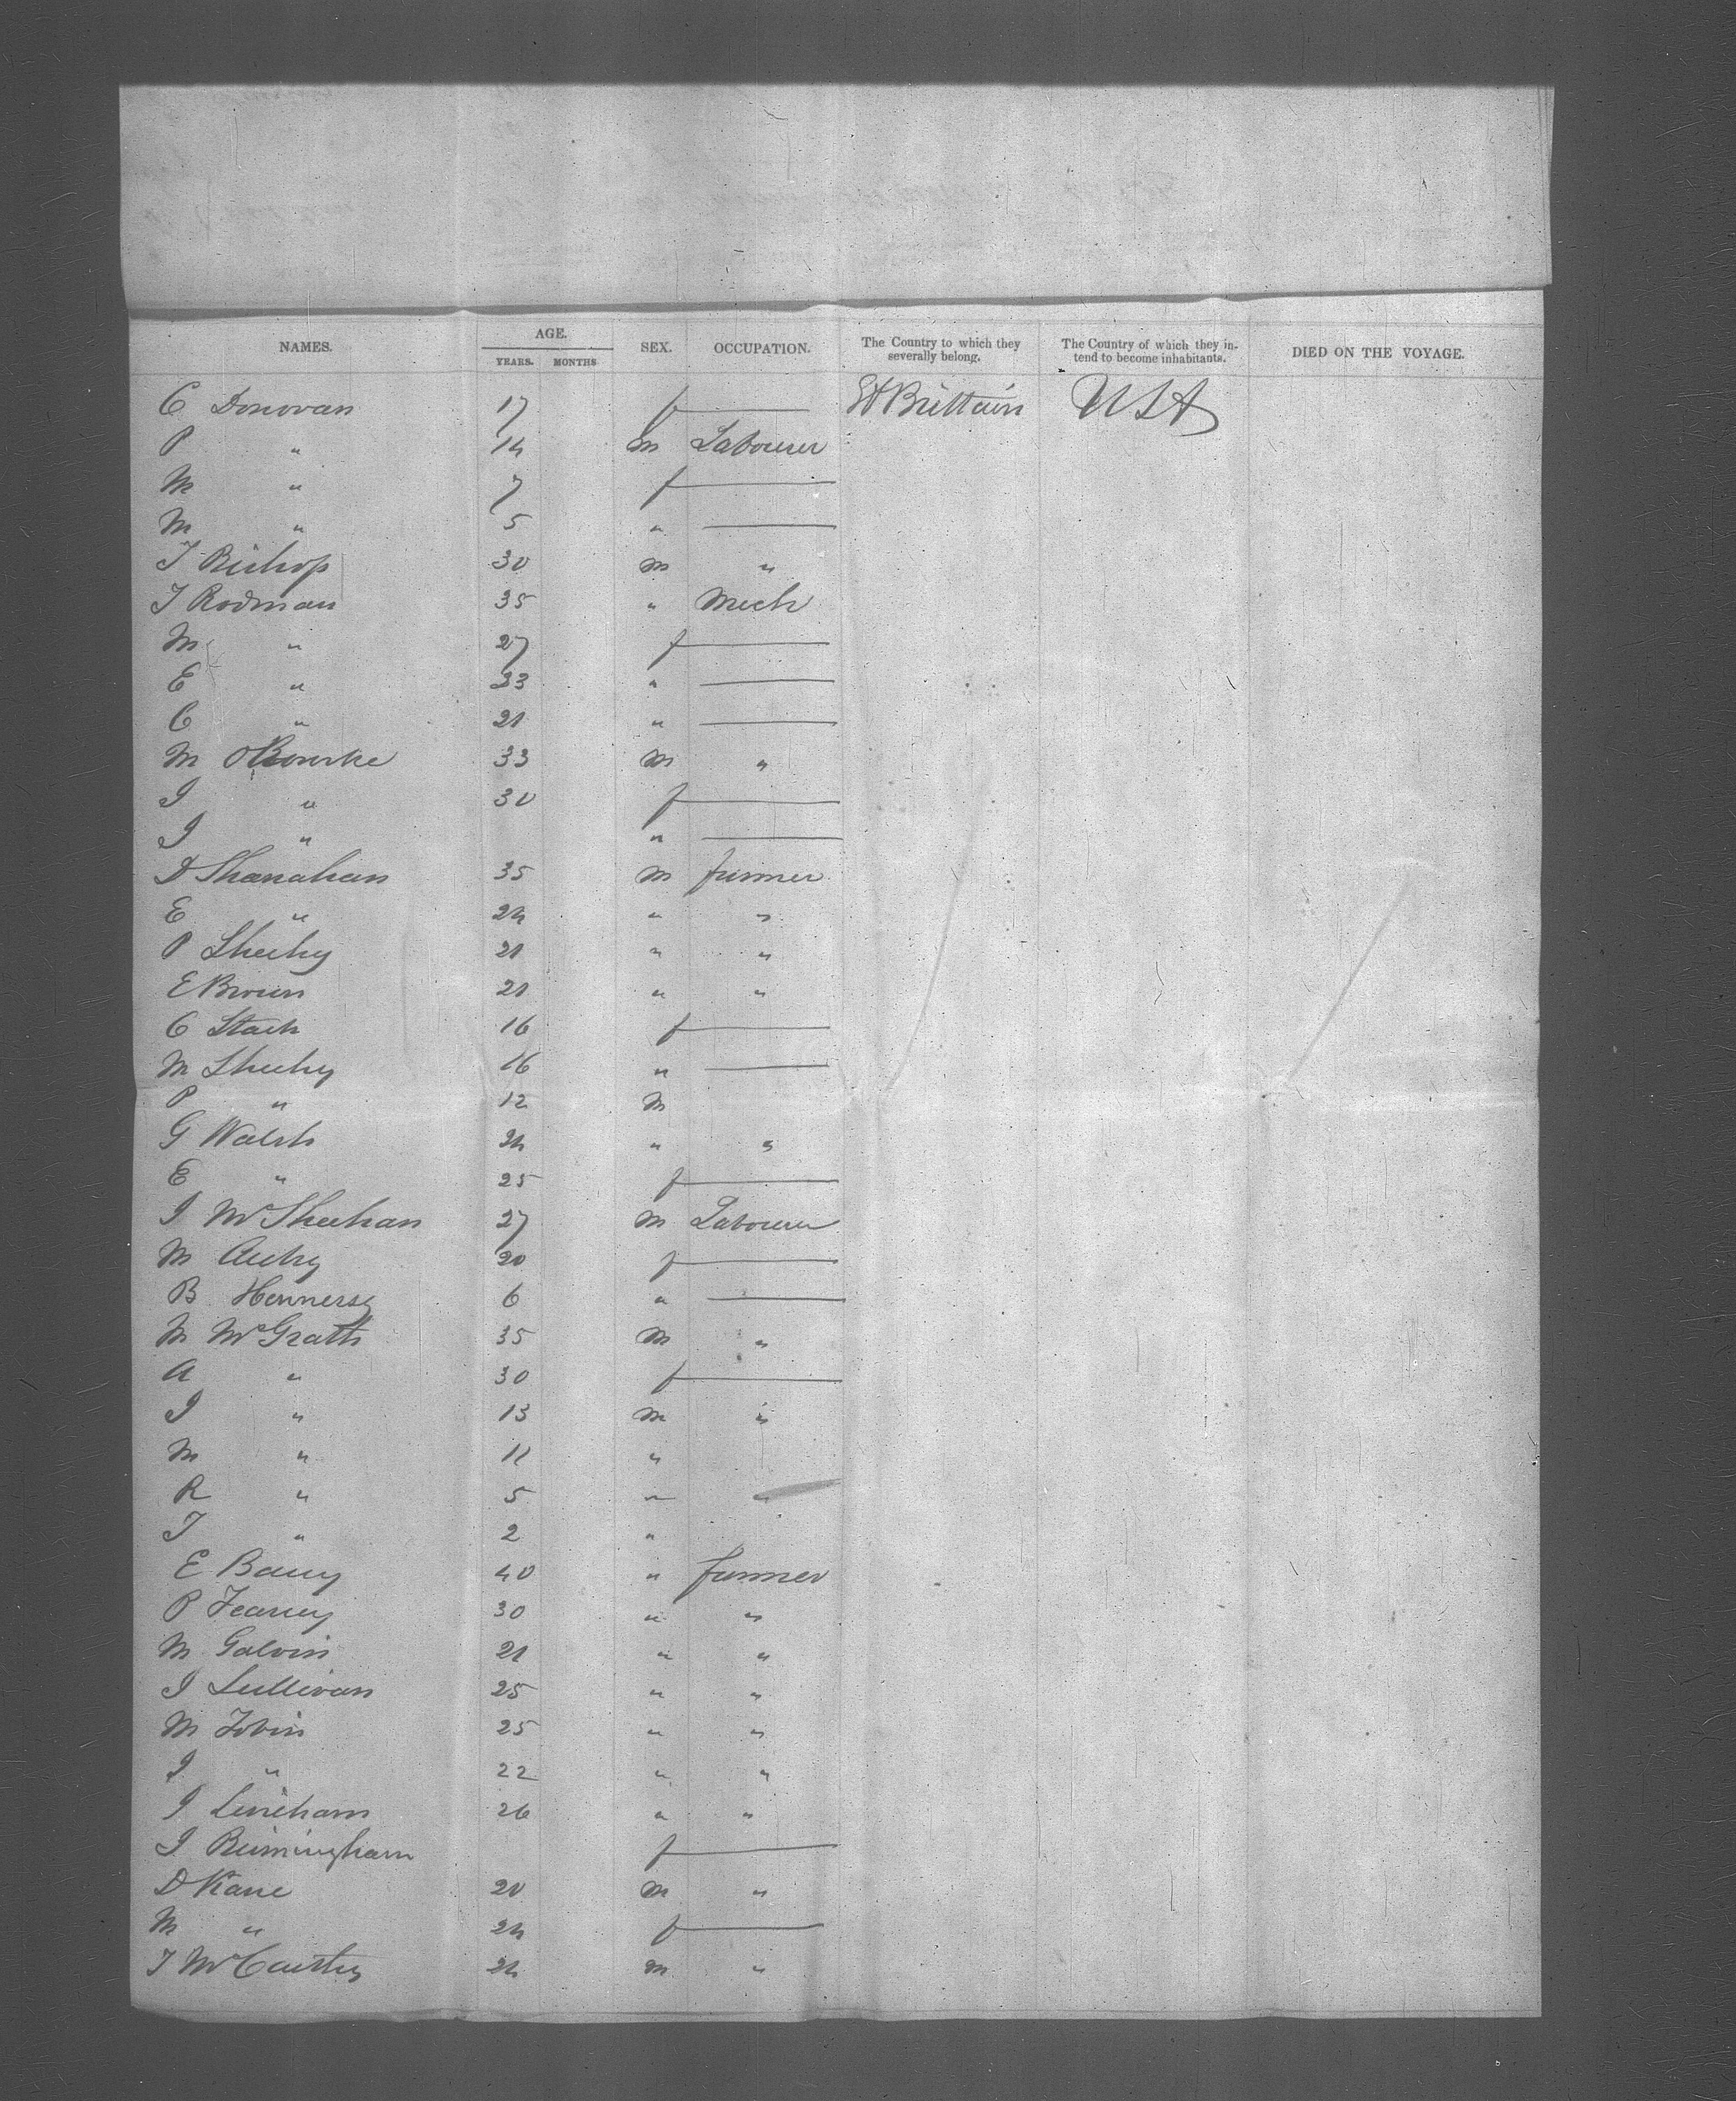 NAMES. AGE. YEARS. MONTHS SEX. OCCUPATION. The Country to which they severally belong. The Country of which they intend to become inhabitants. DIED ON THE VOYAGE.
C Donovan 17 f — Gt Brittain USA
P " 14 m Labourer
M " 7 f —
M " 5 " —
T Bishop 30 m "
T Rodman 35 " Mech
M " 27 f —
E " 23 " —
C " 21 " —
M O'Bourke 33 m "
J " 30 f —
J " " —
D Shanahan 35 m farmer
E " 24 " "
P Sheehy 21 " "
E Brown 21 " "
C Stack 16 f —
M Sheehy 16 " —
P " 12 m
G Walsh 24 " "
E " 25 f —
J McSheehan 27 m Labourer
M 20 f —
B Hennersy 6 " —
M McGrath 35 m "
A " 30 f —
J " 13 m "
M " 11 "
R " 5 " "
T " 2 "
E Barry 40 " farmer
P 30 " "
M Galvin 21 " "
J Sullivan 25 " "
M Tobin 25 " "
J " 22 " "
J Lineham 26 " "
J Birmingham f —
D Kane 20 m "
M " 24 f —
T McCarthy 24 m "